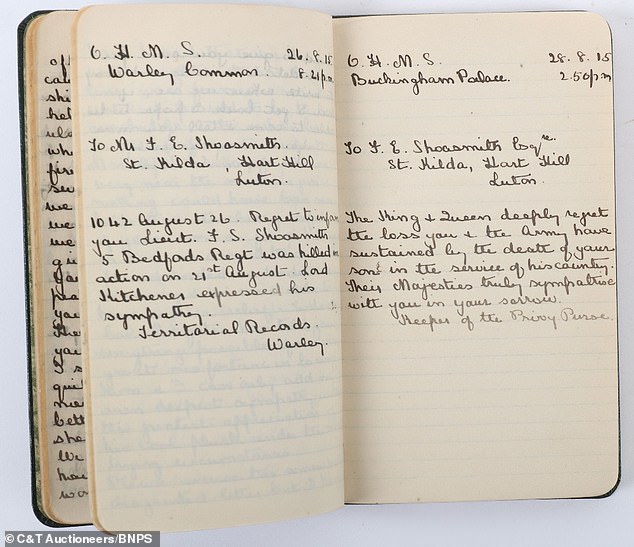 O. H. M. S. 26. 8. 15
Warley Common. 8. 21 p.m
To Mr F. E. Shoosmith.
St. Kilda, Hart Hill
Luton.
1042 August 26. Regret to inform
you Lieut. F. S. Shoosmith
5 Bedfords Regt was killed in
action on 21st August. Lord
Kitchener expressed his
sympathy.
Territorial Records.
Warley.
O. H. M. S. 28. 8. 15
Buckingham Palace. 2. 50 p m
To F. E. Shoosmith Esqre.
St. Kilda, Hart Hill
Luton.
The King & Queen deeply regret
the loss you & the Army have
sustained by the death of your
son in the service of his country.
Their Majesties truly sympathise
with you in your sorrow.
Keeper of the Privy Purse.
© C&T Auctioneers/BNPS